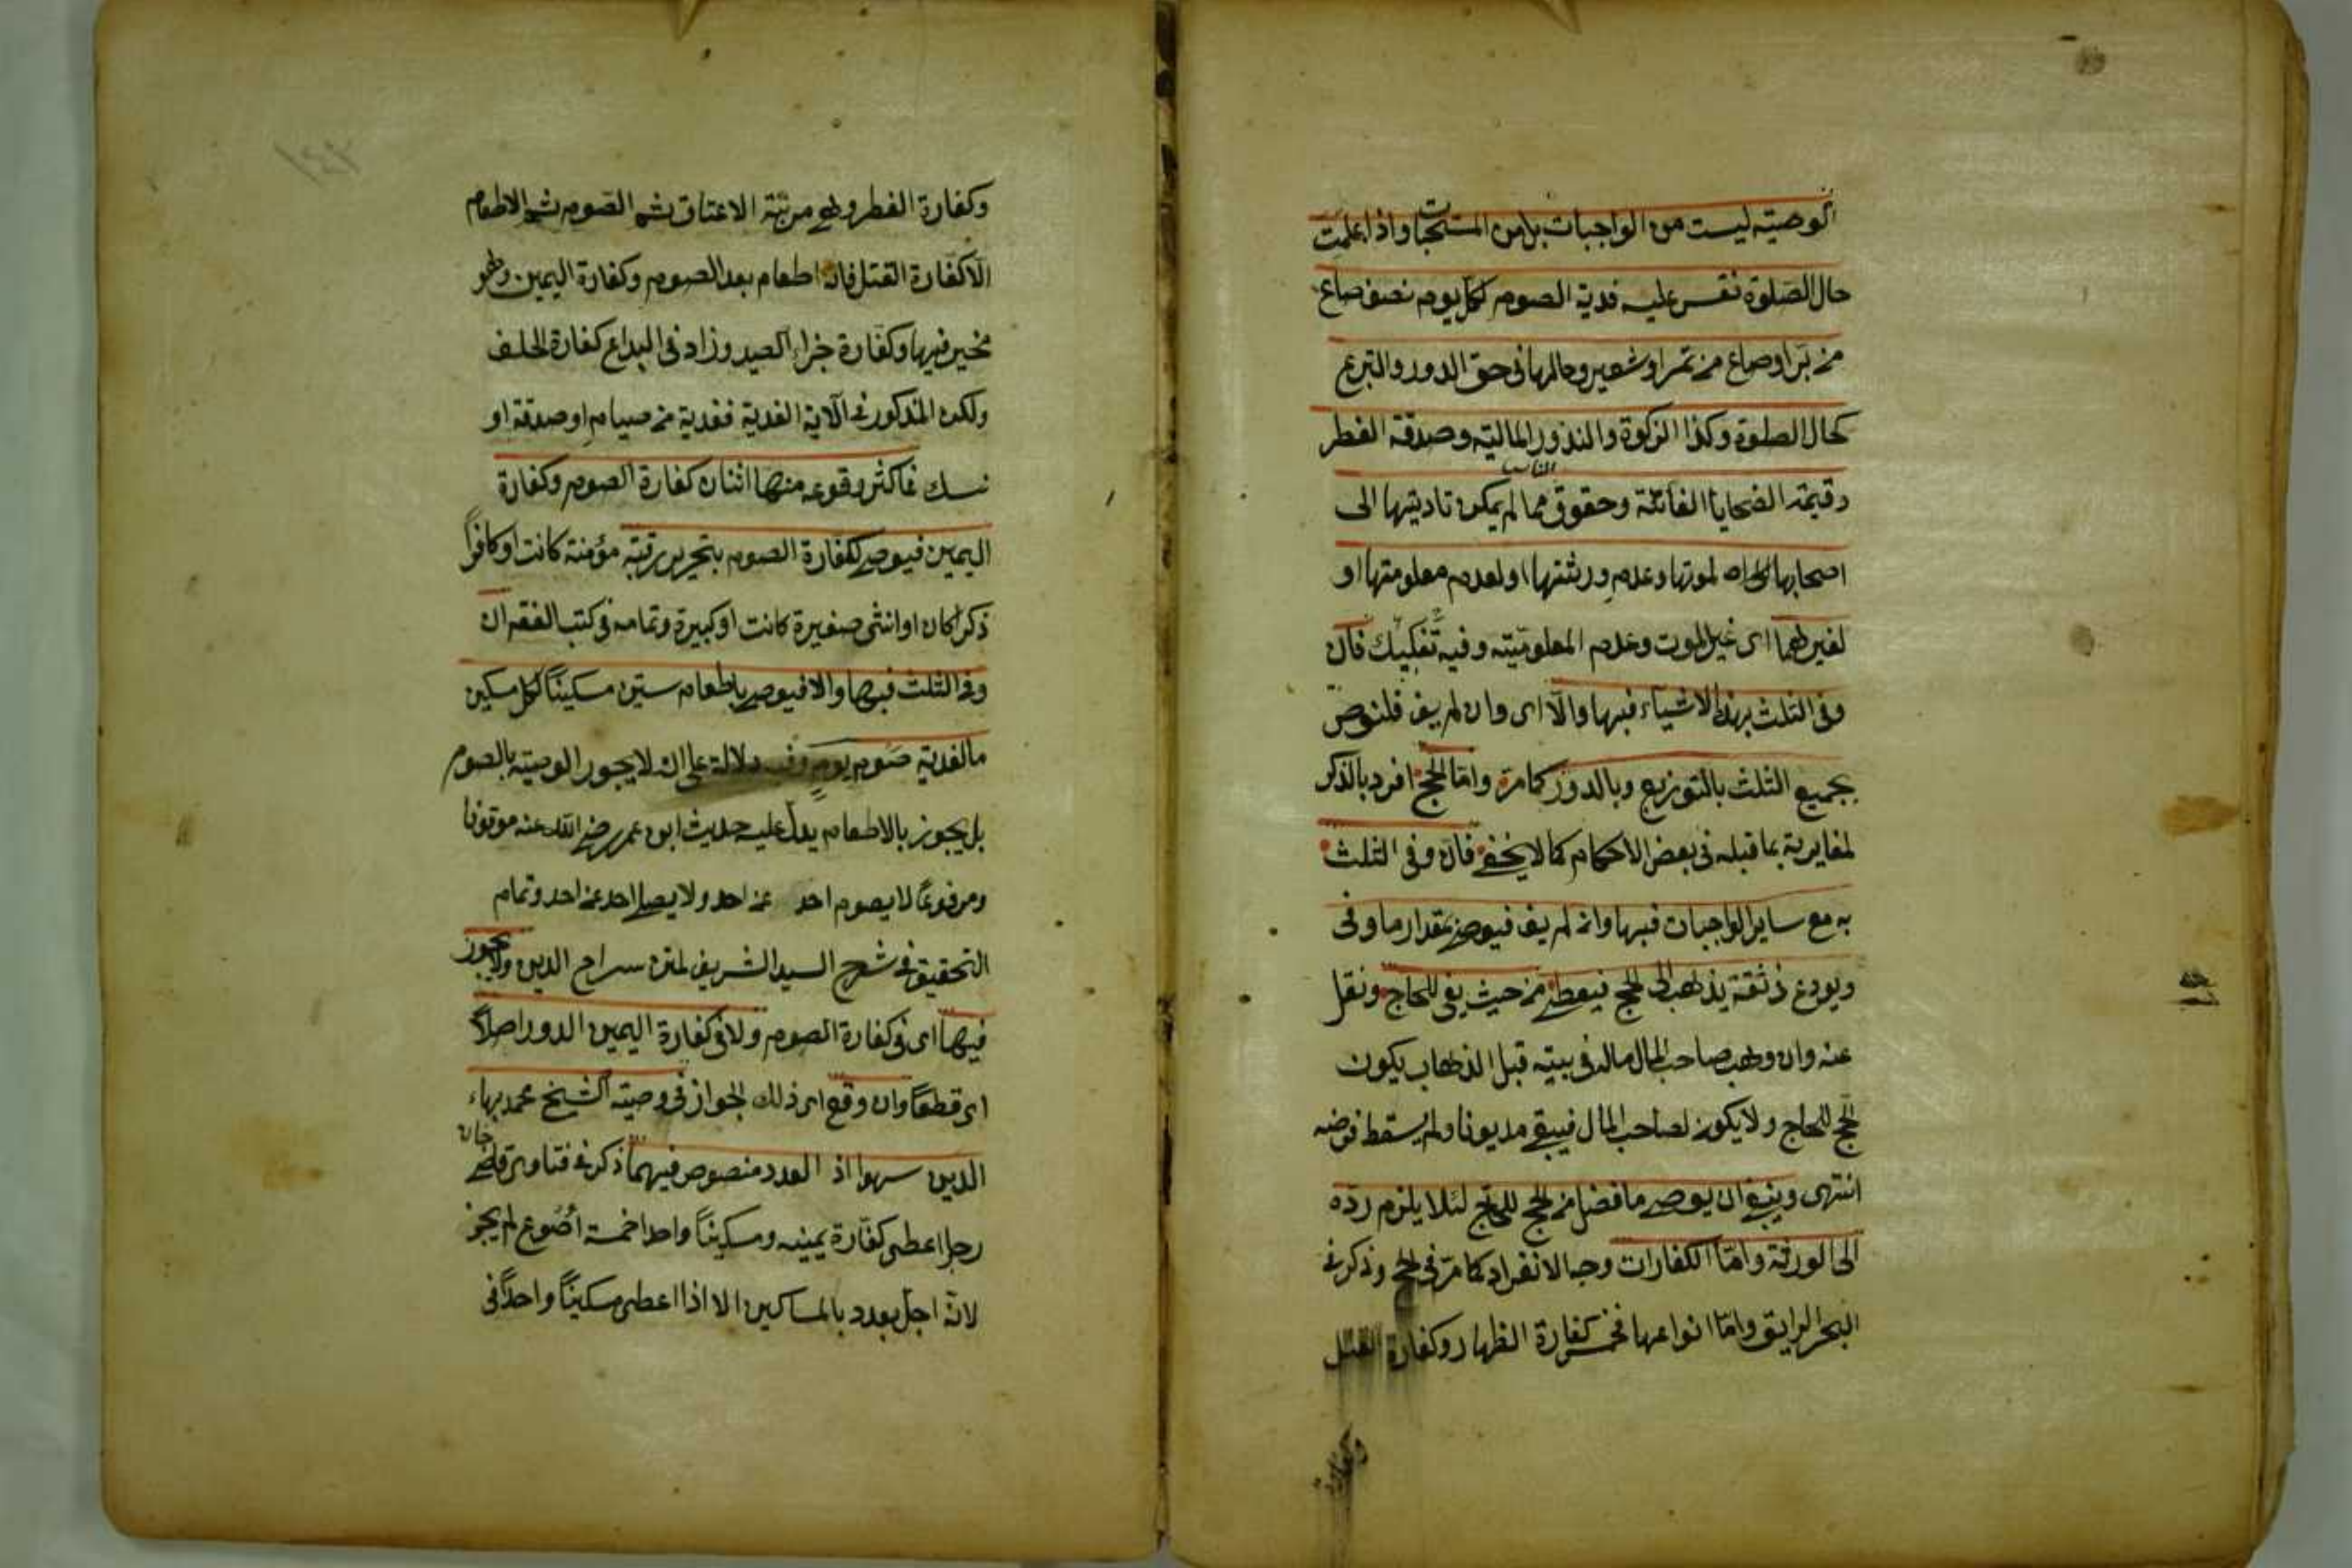 الوصيته ليست من الواجبات بل من المستحبات واذا علمت
حال الصلوة نقس عليه فدية الصوم لكل يوم نصف صاع
من بر او صاع من تمر او شعير وحالها فى حق الدور والتبرع
كحال الصلوة وكذا الزكوة والنذور المالية وصدقة الفطر
وقيمة الضحايا الفائتة وحقوق الناس مما لم يمكن تاديتها الى
اصحابها لموتها وعدم ورثتها او لعدم معلومتها او
لغيرهما اى غير الموت وعدم المعلوميته وفيه تفكيك فان
وفى الثلث بهذه الاشياء فبها والا اى وان لم يف فلنوص
بجميع الثلث بالتوزيع وبالدور كما مرّ وامّا الحج افرد بالذكر
لمغايرية بما قبله فى بعض الاحكام كما لا يخفى فان وفى الثلث
به مع ساير الواجبات فبها وان لم يف فيوصى بمقدار ما وفى
ويودع ذ ثقة يذهب الى الحج فيعطى من حيث يفى للحاج ونقل
عنه وان وهب صاحب المال ماله فى بيته قبل الذهاب يكون
الحج للحاج ولا يكون لصاحب المال فيبقى مديونا ولم يسقط فرضه
انتهى وينبغى ان يوصى ما فضل من الحج للحاج لئلا يلزم ردّه
الى الورثة وامّا الكفارات وجه الانفراد كما مرّ فى الحج وذكر فى
البحر الرايق وامّا انواعها فخمس كفارة الظهار وكفارة القتل
وكفارة
وكفارة الفطر وهى مرتبة الاعتاق ثم الصوم ثم الاطعام
الا كفارة القتل فانه اطعام بعد الصوم وكفارة اليمين وهو
مخير فيها وكفارة جزاء الصيد وزاد فى البدايع كفارة الحلف
ولكن المذكور فى الآية الفدية ففدية من صيام او صدقة او
نسك فما كثر وقوعه منها اثنان كفارة الصوم وكفارة
اليمين فيوصى لكفارة الصوم بتحرير رقبة مؤمنة كانت او كافرًا
ذكرا كان او انثى صغيرة كانت او كبيرة وتمامه فى كتب الفقه ان
وفى الثلث فبها والا فيوصى باطعام ستين مسكينًا كل مسكين
مالفدية صوم يوم وفيه دلالة على انه لا يجوز الوصيته بالصوم
بل يجوز بالاطعام يدل عليه حديث ابن عمر رضى الله عنه موقوفا
ومرفوعًا لا يصوم احد عن احد ولا يصلى احد عن احد وتمام
التحقيق فى شرح السيد الشريف لمتن سراج الدين ولا يجوز
فيها اى فى كفارة الصوم ولا فى كفارة اليمين الدور اصلا
اى قطعًا وان وقع اى ذلك الجواز فى وصية الشيخ محمد بهاء
الدين سهوا اذ العدد منصوص فيهما ذكر فى فتاوى قاضى خان
رجل اعطى كفّارة يمينه ومسكينًا واحدا خمسة أصوع لم يجز
لانّه اجل بعدد بالمساكين الا اذا اعطى مسكينًا واحدًا فى